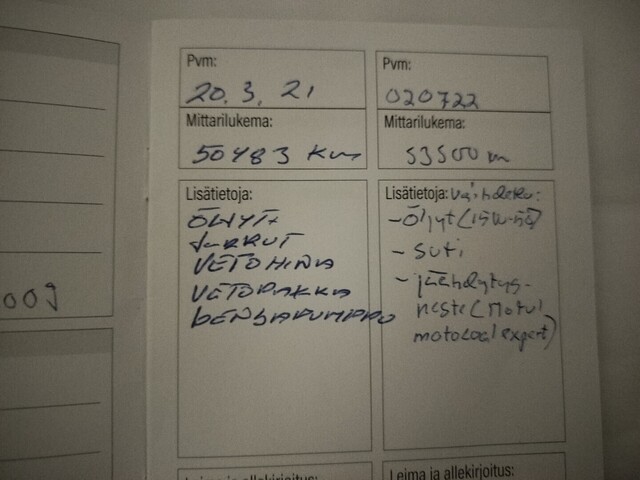 009
Pvm:
20.3.21
Mittarilukema:
50483 km
Lisätietoja:
ÖLJYT+
TULPAT
VETOHIHNA
VETORAKKA
BENSAPUMPPU
Pvm:
020722
Mittarilukema:
53500 m
Lisätietoja: Vaihdettu:
- Öljyt (15W-50)
- suti
- jäähdytys-
neste (Motul
motocool expert)
Leima ja allekirjoitus:
Leima ja allekirjoitus: